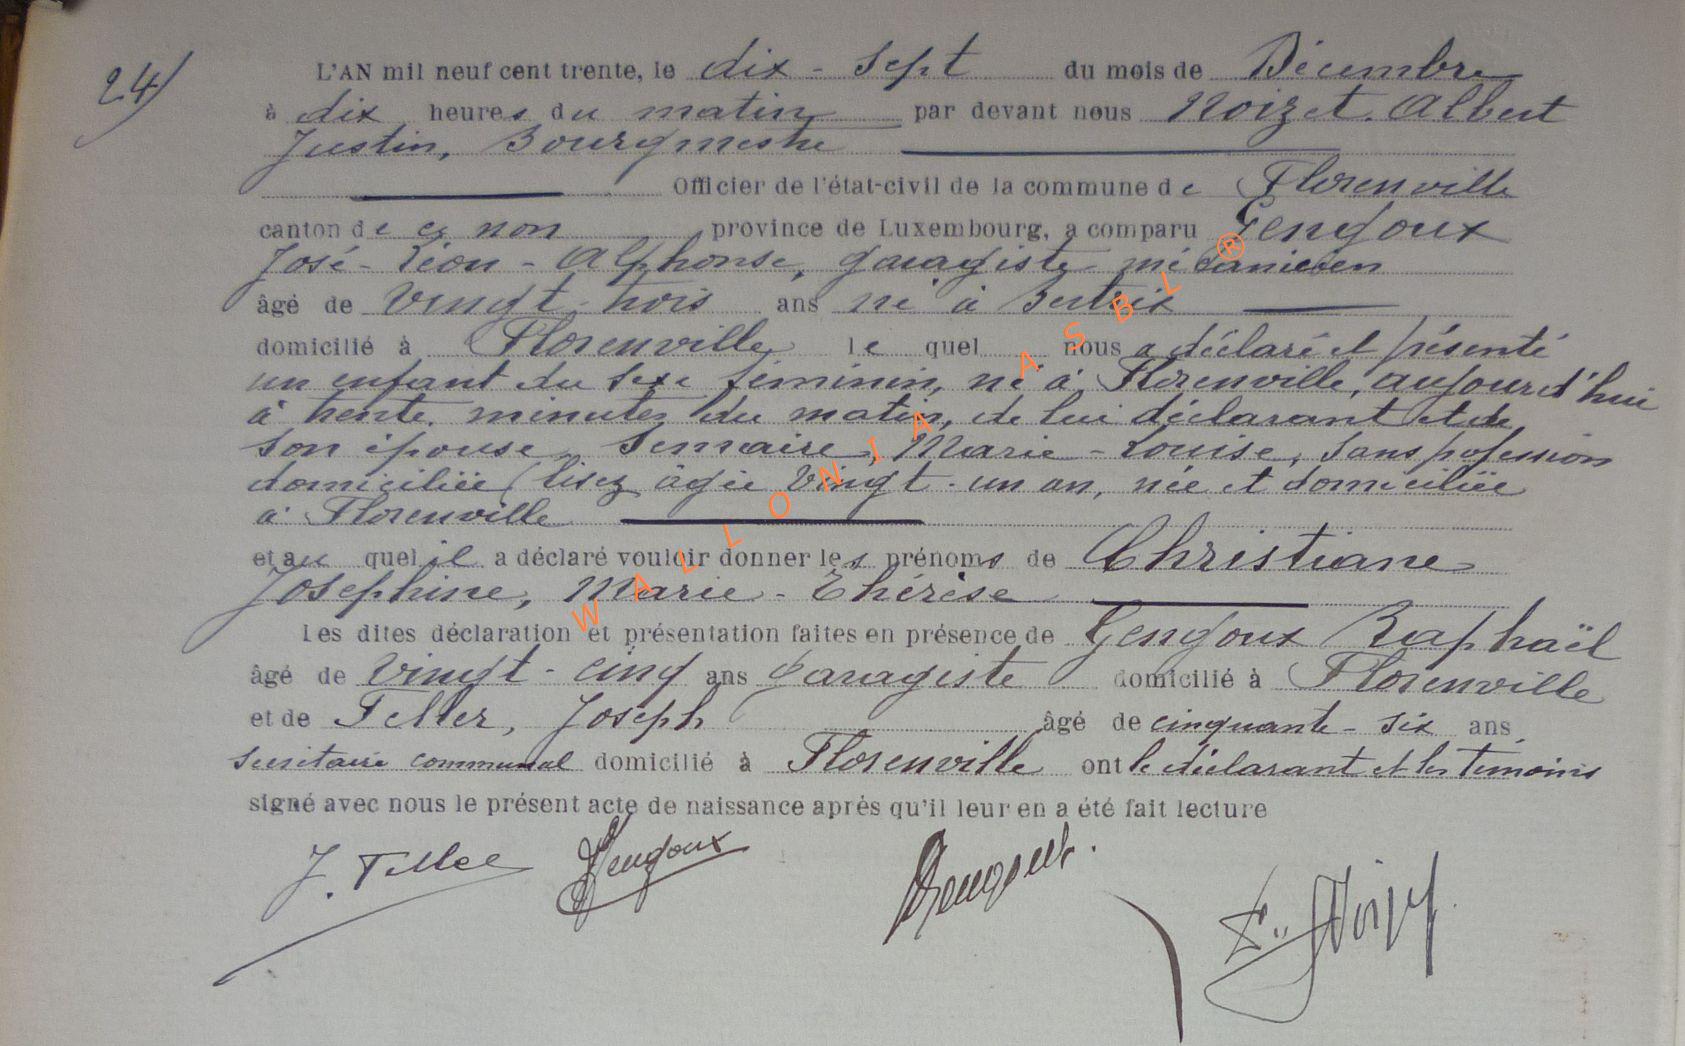 24)
L'AN mil neuf cent trente, le dix - sept du mois de Décembre
à dix heures du matin par devant nous Noizet. Albert
Justin, Bourgmestre
Officier de l'état-civil de la commune de Florenville
canton de ce nom province de Luxembourg, a comparu Gengoux
José - Léon - Alphonse, garagiste mécanicien
âgé de vingt-trois ans né à Bertrix
domicilié à Florenville lequel nous a déclaré et présenté
un enfant du sexe féminin, né à Florenville, aujourd'hui
à trente minutes du matin, de lui déclarant et de
son épouse Semaire, Marie - Louise, sans profession
domiciliée (lisez âgée vingt - un an, née et domiciliée
à Florenville
et auquel il a déclaré vouloir donner les prénoms de Christiane
Josephine, Marie - Thérèse
Les dites déclaration et présentation faites en présence de Gengoux Raphaël
âgé de vingt - cinq ans garagiste domicilié à Florenville
et de Feller, Joseph âgé de cinquante - six ans
secrétaire communal domicilié à Florenville ont le déclarant et les témoins
signé avec nous le présent acte de naissance après qu'il leur en a été fait lecture
J. Feller Gengoux Gengoux. Noizet
WALLONIA ASBL ®